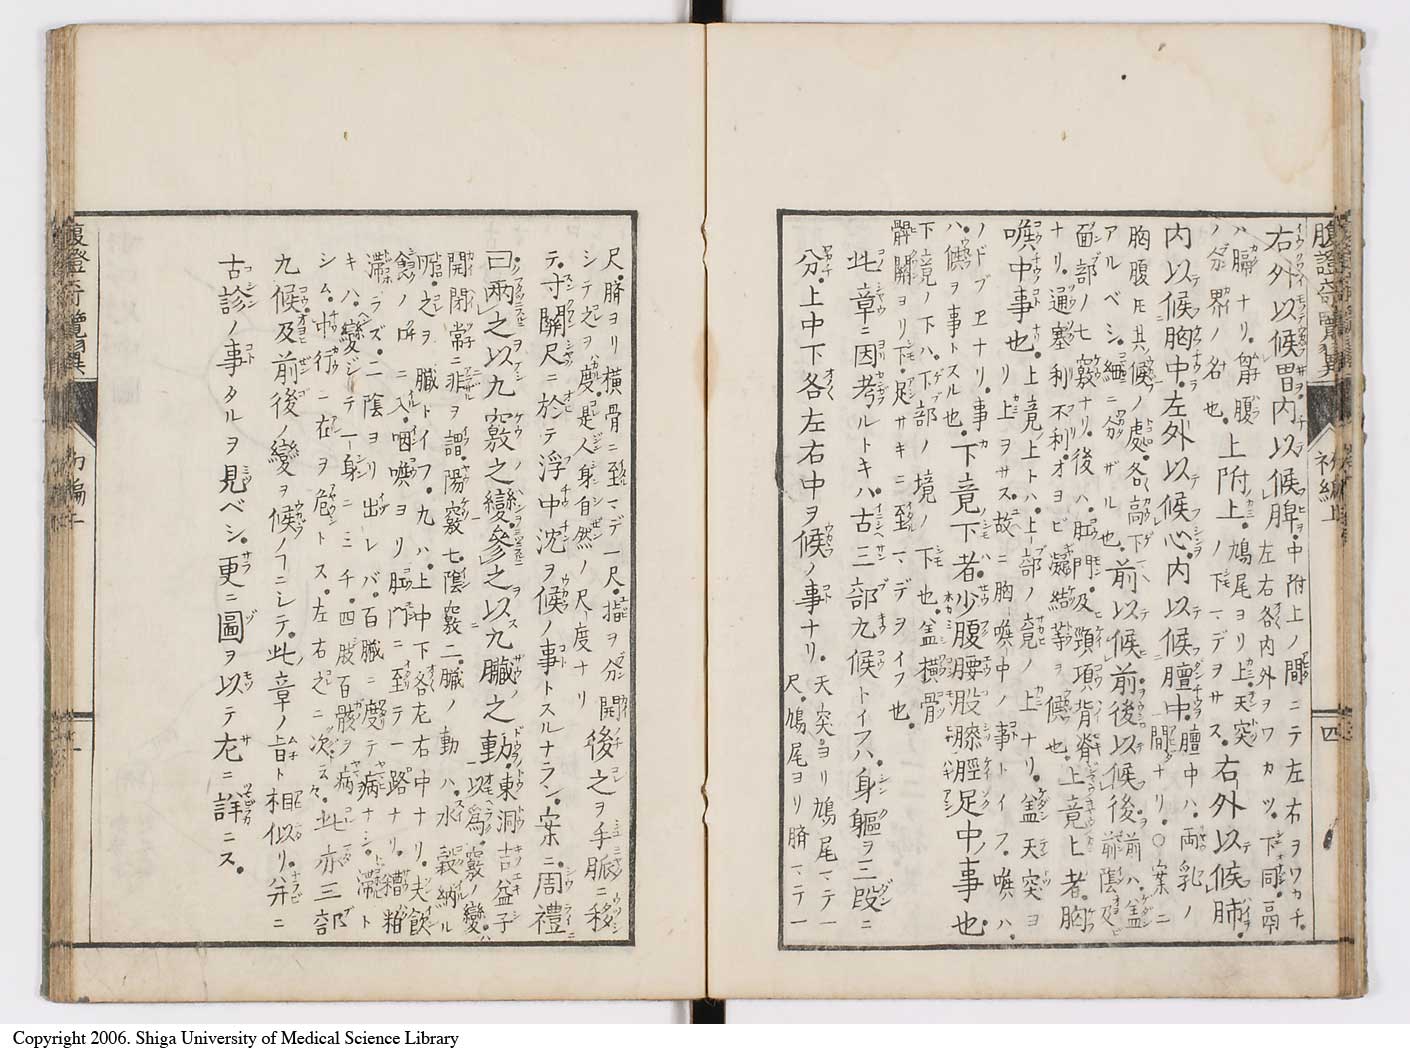 腹證奇覽翼 初編上 四
右外以候胃内以候脾。中附上ノ間ニテ左右ヲワカチ。
ハ膈ナリ。胷腹ノ分界ノ名也。左右各内外ヲワカツ。下同。鬲
上附上。鳩尾ヨリ上。天突ノ下マデヲサス。右外以候肺
内以候胸中。左外以候心。内以候膻中。膻中ハ。両乳ノ間ナリ。○案ニ
胸腹ト其候ノ處。各高下アルベシ。細ニ分ザル也。前以候前後以候後。前ハ。盖前陰及
面部ノ七竅ナリ。後ハ。肛門。及頸項。背脊ナリ。通塞利不利。オヨビ凝結等ヲ候也。上竟上者。胸
喉中事也。上竟ノ上トハ。上部ノ竟ノ上ナリ。盖天突ヨリ上ヲサス。故ニ胸喉中ノ事トイフ。喉ハ。
ノドブエナリ。事ハ。候ヲ事トスル也。下竟下者。少腹腰股膝脛足中ノ事也。
下竟ノ下ハ。下部ノ境ノ下也。盖横骨髀關ヨリ下。足サキニ至マデヲイフ也。
此章ニ因考ルトキハ。古三部九候トイフハ。身軀ヲ三段ニ
分。上中下各左右中ヲ候ノ事ナリ。天突ヨリ鳩尾マデ一尺。鳩尾ヨリ臍マデ一
尺。臍ヨリ横骨ニ至マデ一尺。指ヲ開シテ之ヲ度。是人身自然ノ尺度ナリ。後之ヲ手脈ニ移
テ。寸關尺ニ於テ浮中沈ヲ候ノ事トスルナラン。案ニ。周禮
曰。兩之以九竅之變。參之以九臟之動。東洞吉益子
以爲。竅ノ變ハ。開閉常ニ非ヲ謂。陽竅七。陰竅二。臟ノ動ハ。水穀納ル
所。之ヲ臟トイフ。九ハ。上中下各左右中ナリ。夫飲食ノ口ニ入。咽喉ヨリ肛門ニ至テ一路ナリ。糟粕
滯ラズ。二陰ヨリ出レバ。百臟ニ度テ病ナシ。滯トキハ。變ジテ一身ニミチ。四肢百骸ヲ病
シム。中行ニ在ヲ危トス。左右之ニ次ス々。此亦三部
九候及前後ノ變ヲ候ノコニシテ。此章ノ旨ト相似リ。并ニ
古診ノ事タルヲ見ベシ。更ニ圖ヲ以テ左ニ詳ニス。
腹證奇覽翼
Copyright 2006. Shiga University of Medical Science Library